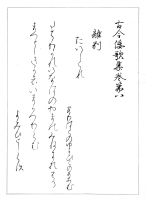 古今倭歌集巻第八
離別
たいしらす
たちわかれいなはのやまのみねにおふる
まつとしきかはいまかへりこむ
よみひとしらす